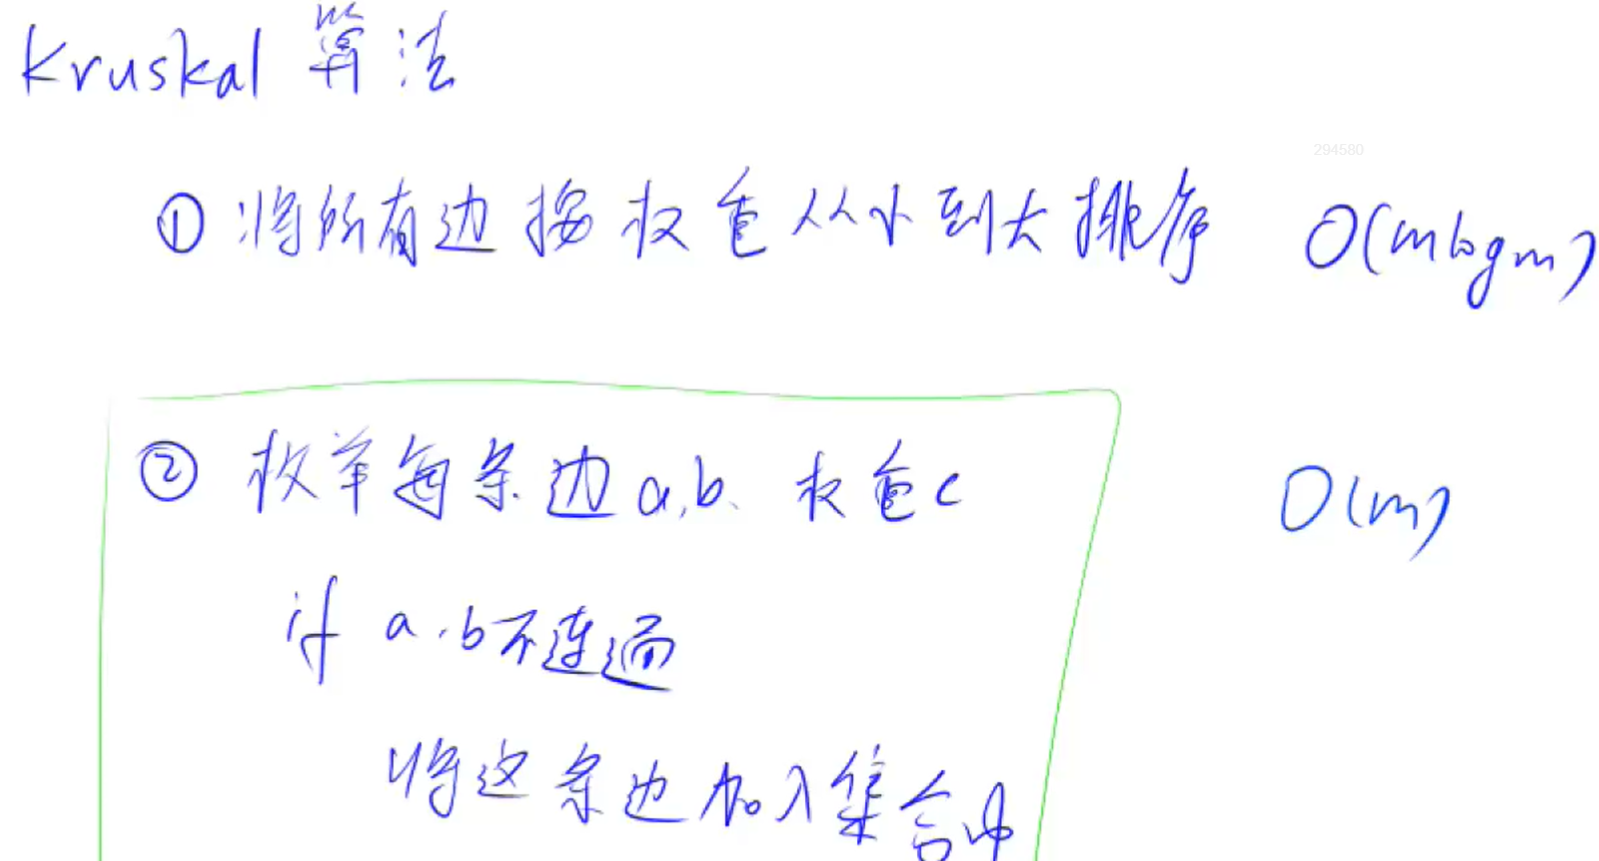 Kruskal 算法
294580
① 将所有边按权重从小到大排序 O(mlogm)
② 枚举每条边a,b、权重c O(m)
if a,b不连通
将这条边加入集合中